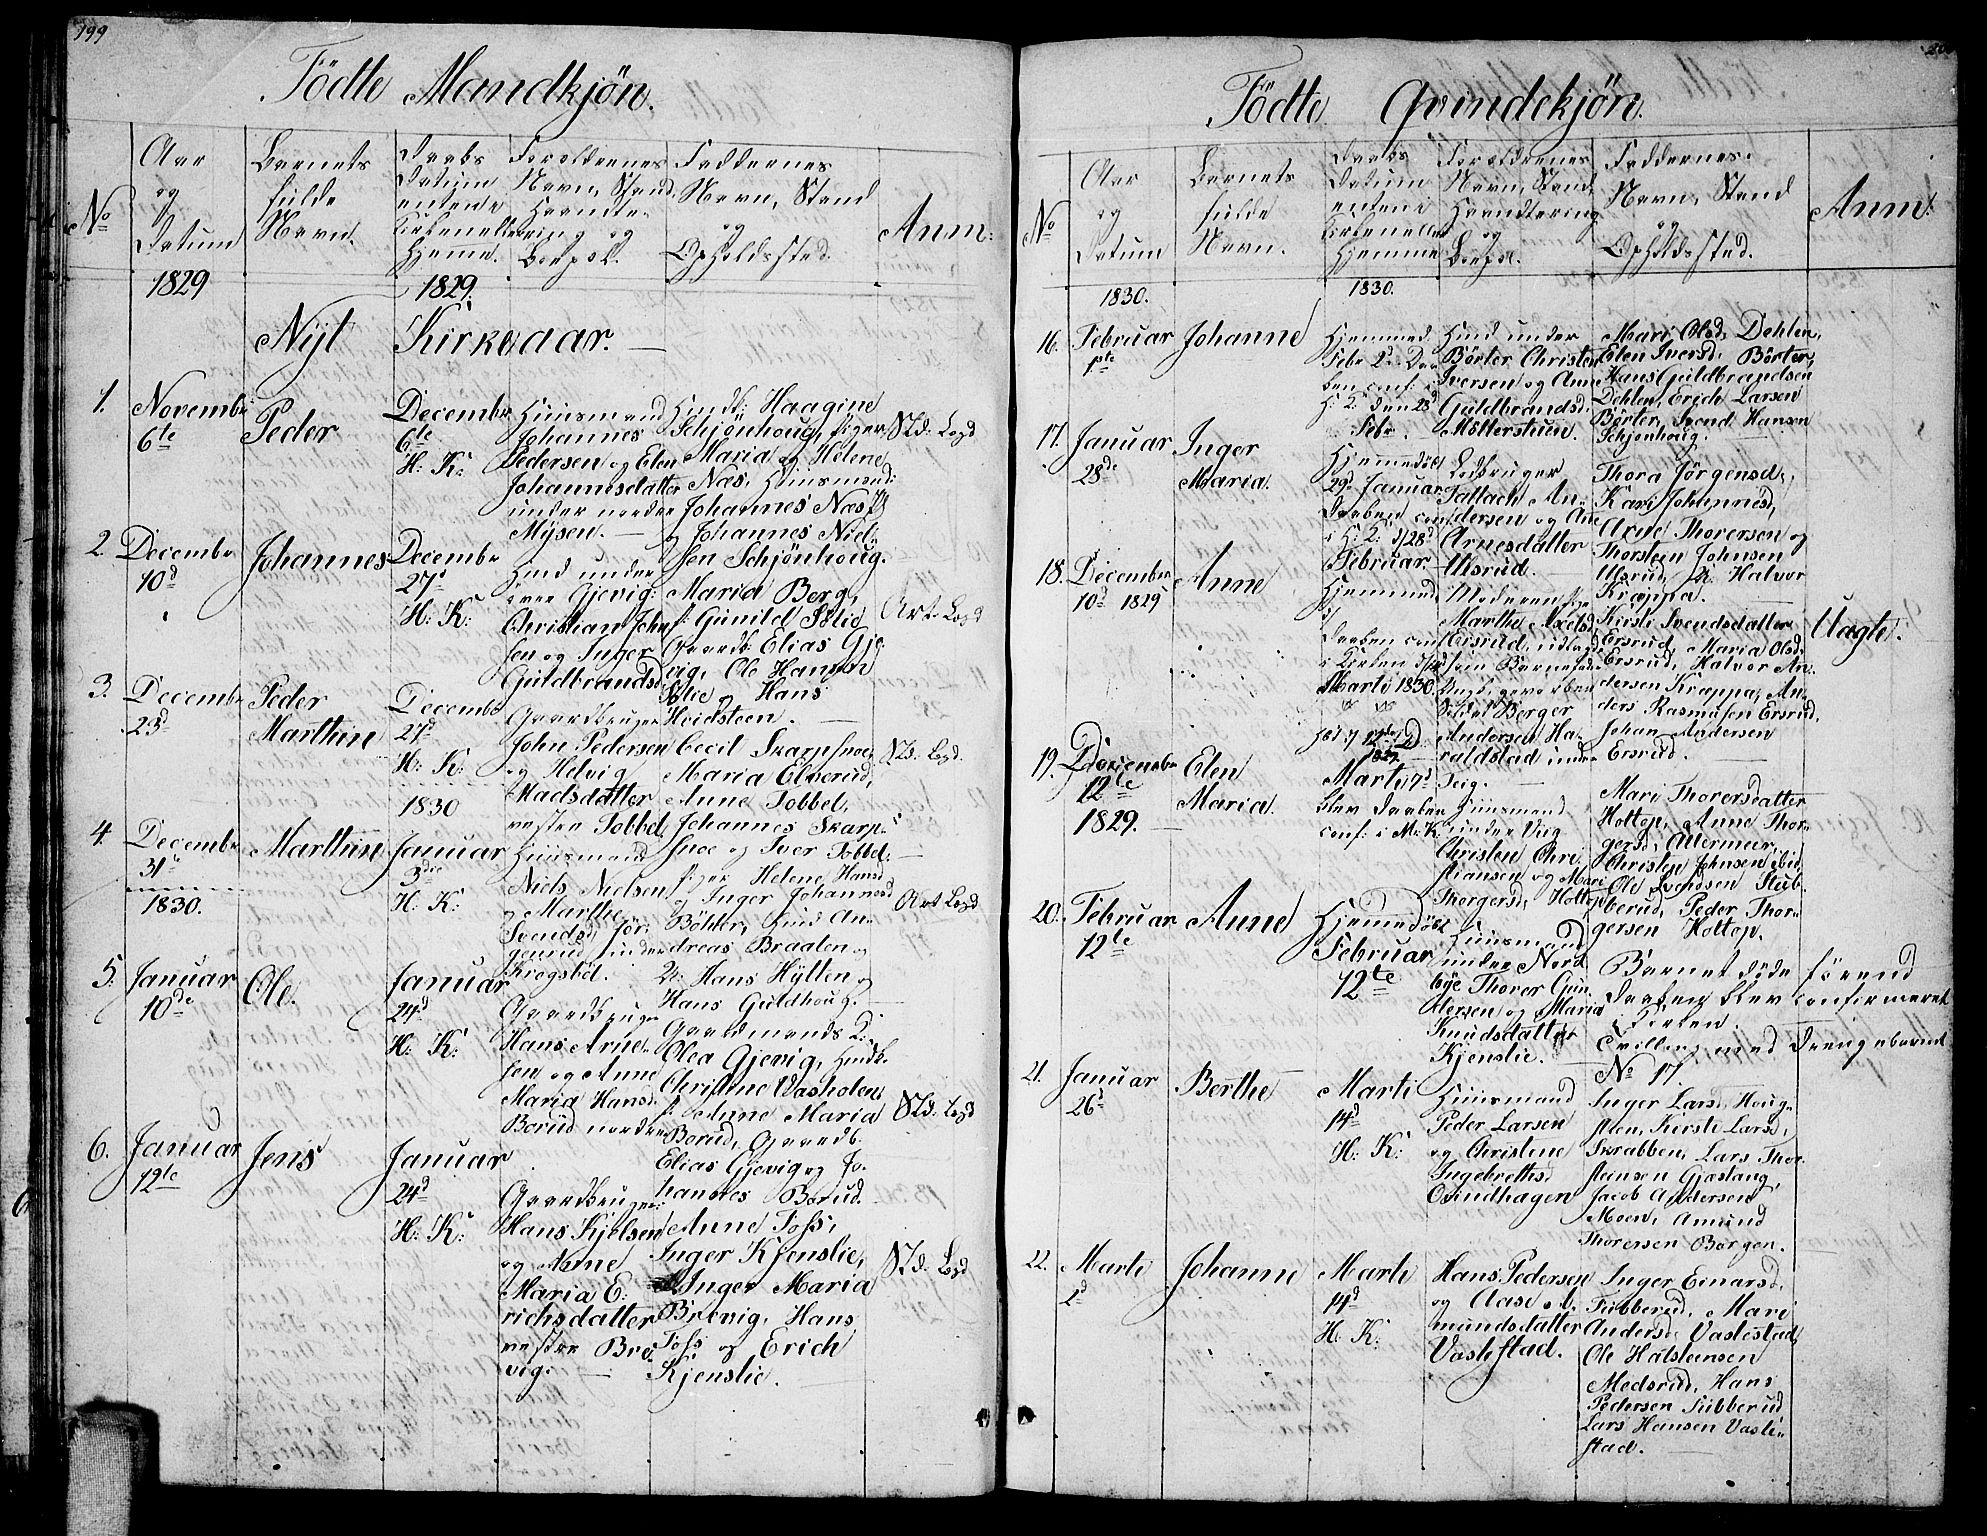 199
Födte Mandkjön.
No
Aar
og
Datum
Barnets
fulde
Navn.
Daabs
Datum
enten i
Kirken eller
Hjemme.
Forældrenes
Navn, Stand
Haandte-
ring og
Bopæl.
Faddernes
Navn, Stand
og
Opholdssted.
Anm:
1829
1829.
Nyt Kirkeaar.
1.
Novembr
6te
Peder
Decembr
6te
H: K:
Huusmand
Johannes
Pedersen og Elen
Johannesdatter
under nordre
Mysen.
Haagine
Schjönhoug, Piger
Maria og Helene
Næs, Huusmænd:
Johannes Næs
og Johannes Niel-
sen Schjönhoug.
2.
Decembr
10d
Johannes
Decembr
27d
H: K:
Hmd under
övre Gjevig:
Christian John
sen og Inger
Guldbrandsd
Maria Berg,
P: Gunild Sölie
Gaardb: Elias Gje
vig, Ole Hansen
Sölie og Hans
Heidsteen.
3.
Decembr
23d
Peder
Marthin
Decembr
27d
H: K:
Gaardbruger
John Pedersen
og Helvig
Madsdatter
vestre Tobbel
Cecil Skarpsnoe
Maria Elverud,
Anne Tobbel,
Johannes Skarp-
snoe og Iver Tobbel.
4.
Decembr
31te
Marthin
1830
Januar
3die
H: K:
Huusmand
Niels Nielsen
og Marthe
Svendsd
under
Krogsböl.
Piger Helene Hansd
og Inger Johannesd
Bölder, Hmd An-
dreas Braaten og
Hans Hytten og
Hans Guldhoug.
1830.
5.
Januar
10de
Ole.
Januar
24d
H: K:
Gaardbruger
Hans Arne-
sen og Anne
Maria Hansd
Borud nordre
Gaardmands K:
Olea Gjevig,
Christine Vasholen,
P: Anne Maria
Borud, Gaardb.
Elias Gjevig og Jo-
hannes Borud.
6.
Januar
12te
Jens
Januar
24d
H: K:
Gaardbruger
Hans Kjelsen
og Anne
Maria E-
richsdatter
vestre Bre-
vig.
Anne Foss,
Inger Kjenslie,
Inger Maria
Brevig, Hans
Foss og Erich
Kjenslie.
Födte Qvindekjön.
No
Aar
og
Datum
Barnets
fulde
Navn.
Daabs
Datum
enten i
Kirken eller
Hjemme
Forældrenes
Navn, Stand,
Haandtering
og
Bopæl.
Faddernes
Navn, Stand
og
Opholdssted.
Anm:
1830.
1830.
16.
Februar
1ste
Johanne
Hjemmed
Febr 2d Daa
ben conf: i
H: K: den 28d
Febr.
Hmd under
Börter Christen
Iversen og Ane
Guldbrandsd
Mötterstuen.
Mari Olsd Dehlen,
Elen Iversd. Börter,
Hans Guldbrandsen
Dehlen, Erich Larsen
Börter, Svend Hansen
Schjönhoug.
17.
Januar
28de
Inger
Maria.
Hjemmedöbt
29d Januar
Daaben conf
i H: K: d/28d
Februar.
Ledbruger
Tallach An-
dersen og Ane
Arnesdatter
Ulsrud.
Thora Jörgensd,
Kari Johannesd,
Arne Thorersen og
Thorsteen Johnsen
Ulsrud, Halvor
Krappa.
18.
December
10d 1829
Anne
Hjemmed
Daaben conf
i Kirken
Marti 1830.
Moderen Pige
Marthe Axelsd
Eisrud, udlagd
som Barnefader
Soldat Berger
Andersen Ha-
raldstad under
Teig.
Kirsti Svendsdatter
Ersrud, Maria Olsd.
Ersrud, Halvor An-
dersen Krappa, An-
ders Rasmusen Ersrud,
Johan Andersen
Ersrud.
Uægte.
19.
December
12te
1829.
Elen
Maria.
Marti 7d
blev Daaben
conf: i M: K.
Huusmand
under
Christen Chri-
stiansen og Mari
Thorgersd. Hottop
Mari Thorersdatter
Hottop, Anne Thor-
gersd,
Christen Johnsen ibid
Ole Svendsen Stub-
berud, Peder Thor-
gersen Hottop.
20.
Februar
12te
Anne
Hjemmedöbt
Februar
12te
Huusmand
under Nord
bye Thorer Gun
dersen og Maria
Knudsdatter
Kjenslie.
Barnet döde förend
Daaben blev confirmeret
i Kirken.
Tvilling med Drengebarnet
No 17.
21.
Januar
26d
Berthe
Marti
14d
H: K:
Huusmand
Peder Larsen
og Christine
Ingebretsd
Ovindhagen
Inger Larsd, Houg-
sten, Kirsti Larsd,
Skrabben, Lars Thor-
stensen Gjæstang,
Jacob Andersen
Moen, Amund
Thorersen Borgen.
22.
Marti
2d
Johanne
Marti
14d
H: K:
Hans Pedersen
og Aase A-
mundsdatter
Vastestad.
Inger Einarsd.
Stubberud, Mari
Andersd. Vastestad,
Ole Halsteensen
Medsrud, Hans
Pedersen Stubberud
Lars Hansen Vaste-
stad.